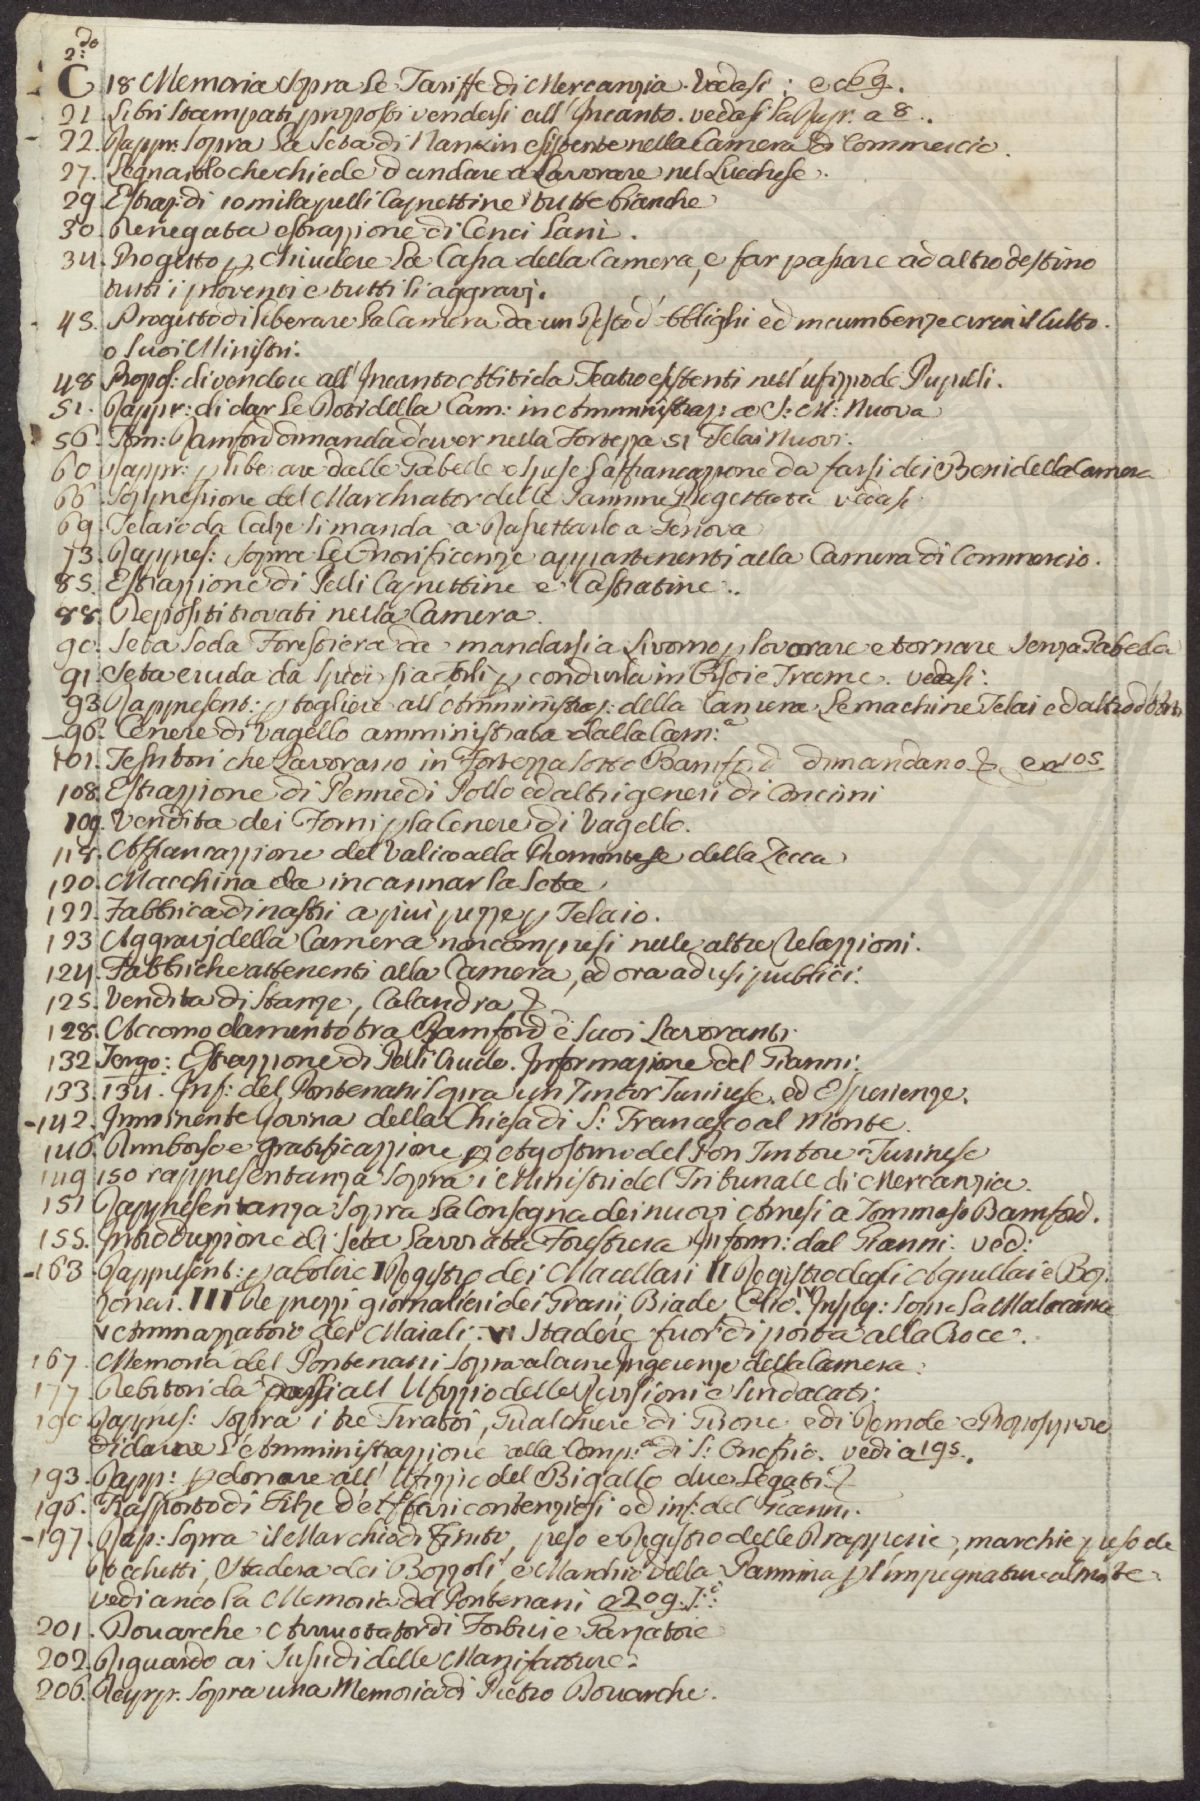 2:do
C 18 Memoria sopra le Tariffe di Mercanzia. Vedasi: e c 69.
21. Libri Stampati proposti vendersi all'Incanto. vedasi la Rapr: a 8..
- 22. Rappr: sopra la Seta di Nankin esistente nella Camera di Commercio.
27. Legnaiolo che chiede d'andare a Lavorare nel Lucchese.
29. Estraz: di 10 mila pelli Caprettine tutte bianche
30. Renegata estrazzione di Cenci Lani.
34. Progetto p chiudere la Cassa della Camera, e far passare ad altro destino
tutti i proventi e tutti li aggravj.
- 45. Progetto di liberare la Camera da un Resto d'Obblighi ed incumbenze circa il Culto.
o suoi Ministri.
48 Propos: di vendere all'Incanto Abiti da Teatro esistenti nell'ufizzo de Pupilli.
51. Rappr: di dar le Doti della Cam: in Amministraz: a S: M: Nuova
56. Tom: Bamford dimanda d'aver nella Fortezza 51 Telai Nuovi.
60 Rappr: p liberare dalle Gabelle e spese l'affrancazione da farsi dei Beni della Camera
66 Soppressione del Marchiator delle Pannine Progettata vedasi
69. Telaio da Calze si manda a Rassettarlo a Genova
73. Rappres: sopra le Onorificenze appartenenti alla Camera di Commercio.
85. Estrazzione di Pelli Caprettine e Castratine..
88. Depositi trovati nella Camera.
90. Seta Soda Forestiera da mandarsi a Livorno p lavorare e tornare senza Gabella
91. Seta cruda da spedirsi a Forlì p condurla in Orsoi e Trame. vedasi:
93 Rappresent: p togliere all'Amministraz: della Camera le machine Telai ed altro d'Arti
- 96. Cenere di Vagello amministrata dalla Cam:a
101. Tessitori che Lavorano in Fortezza sotto Bamford dimandano & e a 105
108. Estrazzione di Penne di Pollo ed altri generi di Concimi
109. Vendita dei Forni p la Cenere di Vagello.
118. Affrancazzione del Valico alla Piemontese della Zecca
120. Macchina da incannar la Seta
122. Fabbrica di nastri a piui pezze p Telaio.
123 Aggravj della Camera non compresi nelle altre Relazzioni.
124. Fabbriche attenenti alla Camera, ed ora ad usi pubblici.
125. Vendita di Stanze, Calandra &
128. Accomodamento tra Bamford e suoi Lavoranti.
132 Tergo: Estrazzione di Pelli Crude. Informazione del Gianni.
133. 134. Inf: del Pontenani sopra un Tintor Turinese. ed Esperienze.
- 142. Imminente Rovina della Chiesa di S: Francesco al Monte.
146. Rimborso e gratificazzione p Agostino del Pon Tintore Turinese
149 150 rappresentanza sopra i Ministri del Tribunale di Mercanzia.
151 Rappresentanza sopra la Consegna dei nuovi Arnesi a Tommaso Bamford.
155. Introduzzione di Seta lavorata Forestiera Inform: dal Gianni. ved:
- 163. Rappresent: p abolire I Registro dei Macellari II Registro degli Agnellai e Boz-
zonai. III Re prezzi giornalieri dei Grani, Biade, Olio. IV Inspez: sopra la Malacarne
V Ammazzatoio dei Maiali. VI Stadere fuor di porta alla Croce.
167. Memoria del Pontenani sopra alcune Ingerenze della Camera.
177. Debitori da darsi all'Ufizzio delle Revisioni e Sindacati.
190 Rappres: sopra i tre Tiratoi, Gualchiere di Girone e di Remole e Proposizzione
di darne l'Amministrazzione alla Comp:a di S: Onofrio. vedi a 195.
193. Rapp: p donare all'Ufizzio del Bigallo due Legati &
196. Trasporto di Filze d'Affari contenziosi ed inf: del Gianni.
- 197. Rap: sopra il Marchio di Tinto, peso e Registro delle Drapperie, marchie peso de
Rocchetti, Stadera dei Bozzoli, e Marchio della Pannina p l'impegnature al Monte
vedi anco la Memoria del Pontenani a 209. &:
201. Douarche Arruotator di Forbici e Garzatore
202. Riguardo ai Sussidi delle Manifatture.
206. Rappr. sopra una Memoria di Pietro Douarche.